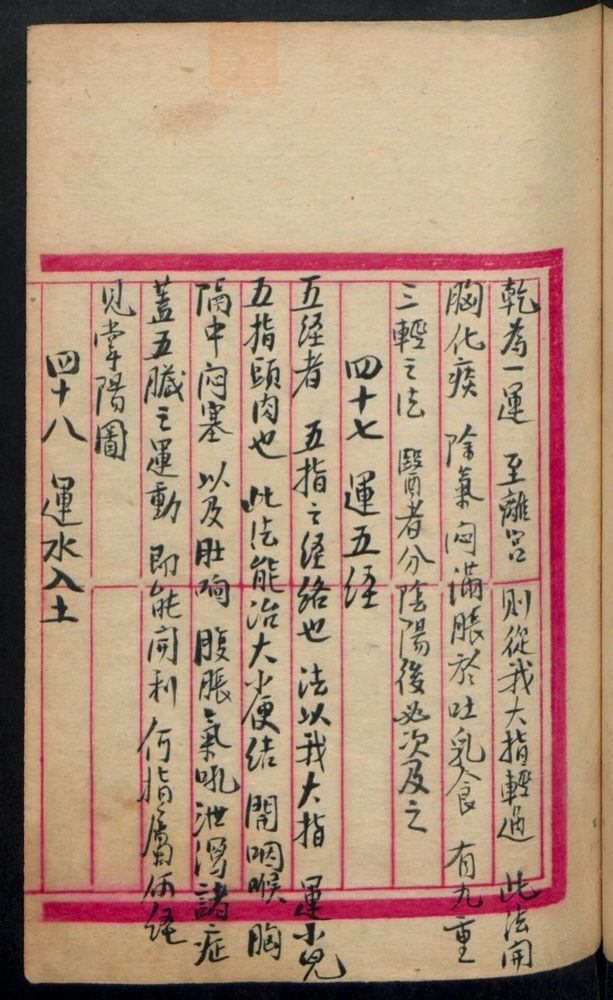 乾為一運 至離宮 則從我大指輕過 此法開
胸化痰 除氣悶滿脹於吐乳食 有九重
三輕之法 醫者分陰陽後必次及之
四十七 運五经
五经者 五指之经络也 法以我大指 運小児
五指頭肉也 此法能治大小便结 開咽喉 胸
隔中闷塞 以及肚响 腹脹 氣吼 泄瀉諸症
蓋五臟之運動 即能開利 何指屬何经
見掌陽圖
四十八 運水入土